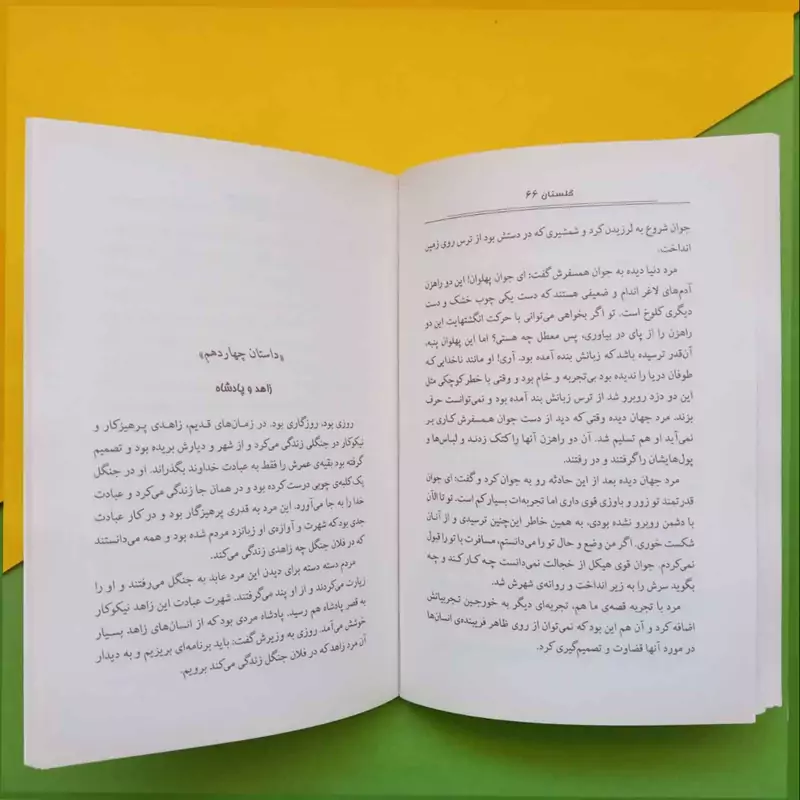 گلستان ۶۶
جوان شروع به لرزیدن کرد و شمشیری که در دستش بود از ترس روی زمین
انداخت.
مرد دنیا دیده به جوان همسفرش گفت: ای جوان پهلوان! این دو راهزن
آدم‌های لاغر اندام و ضعیفی هستند که دست یکی چوب خشک و دست
دیگری کلوخ است. تو اگر بخواهی می‌توانی با حرکت انگشتهایت این دو
راهزن را از پای در بیاوری، پس معطل چه هستی؟ اما این پهلوان پنبه،
آن‌قدر ترسیده باشد که زبانش بنده آمده بود. آری! او مانند ناخدایی که
طوفان دریا را ندیده بود بی‌تجربه و خام بود و وقتی با خطر کوچکی مثل
این دو دزد روبرو شد از ترس زبانش بند آمده بود و نمی‌توانست حرف
بزند. مرد جهان دیده وقتی که دید از دست جوان همسفرش کاری بر
نمی‌آید او هم تسلیم شد. آن دو راهزن آنها را کتک زدند و لباس‌ها و
پول‌هایشان را گرفتند و در رفتند.
مرد جهان دیده بعد از این حادثه رو به جوان کرد و گفت: ای جوان
قدرتمند تو زور و باوزی قوی داری اما تجربه‌ات بسیار کم است. تو تا الآن
با دشمن روبرو نشده بودی، به همین خاطر این‌چنین ترسیدی و از آنان
شکست خوری. اگر من وضع و حال تو را می‌دانستم، مسافرت با تو را قبول
نمی‌کردم. جوان قوی هیکل از خجالت نمی‌دانست چه کار کند و چه
بگوید سرش را به زیر انداخت و روانه‌ی شهرش شد.
مرد با تجربه قصه‌ی ما هم، تجربه‌ای دیگر به خورجین تجربیاتش
اضافه کرد و آن هم این بود که نمی‌توان از روی ظاهر فریبنده‌ی انسان‌ها
در مورد آنها قضاوت و تصمیم‌گیری کرد.
«داستان چهاردهم»
زاهد و پادشاه
روزی بود، روزگاری بود. در زمان‌های قدیم، زاهدی پرهیزکار و
نیکوکار در جنگلی زندگی می‌کرد و از شهر و دیارش بریده بود و تصمیم
گرفته بود بقیه‌ی عمرش را فقط به عبادت خداوند بگذراند. او در جنگل
یک کلبه‌ی چوبی درست کرده بود و در همان جا زندگی می‌کرد و عبادت
خدا را به جا می‌آورد. این مرد به قدری پرهیزگار بود و در کار عبادت
جدی بود که شهرت و آوازه‌ی او زبانزد مردم شده بود و همه می‌دانستند
که در فلان جنگل چه زاهدی زندگی می‌کند.
مردم دسته دسته برای دیدن این مرد عابد به جنگل می‌رفتند و او را
زیارت می‌کردند و از او پند می‌گرفتند. شهرت عبادت این زاهد نیکوکار
به قصر پادشاه هم رسید. پادشاه مردی بود که از انسان‌های زاهد بسیار
خوشش می‌آمد. روزی به وزیرش گفت: باید برنامه‌ای بریزیم و به دیدار
آن مرد زاهد که در فلان جنگل زندگی می‌کند برویم.